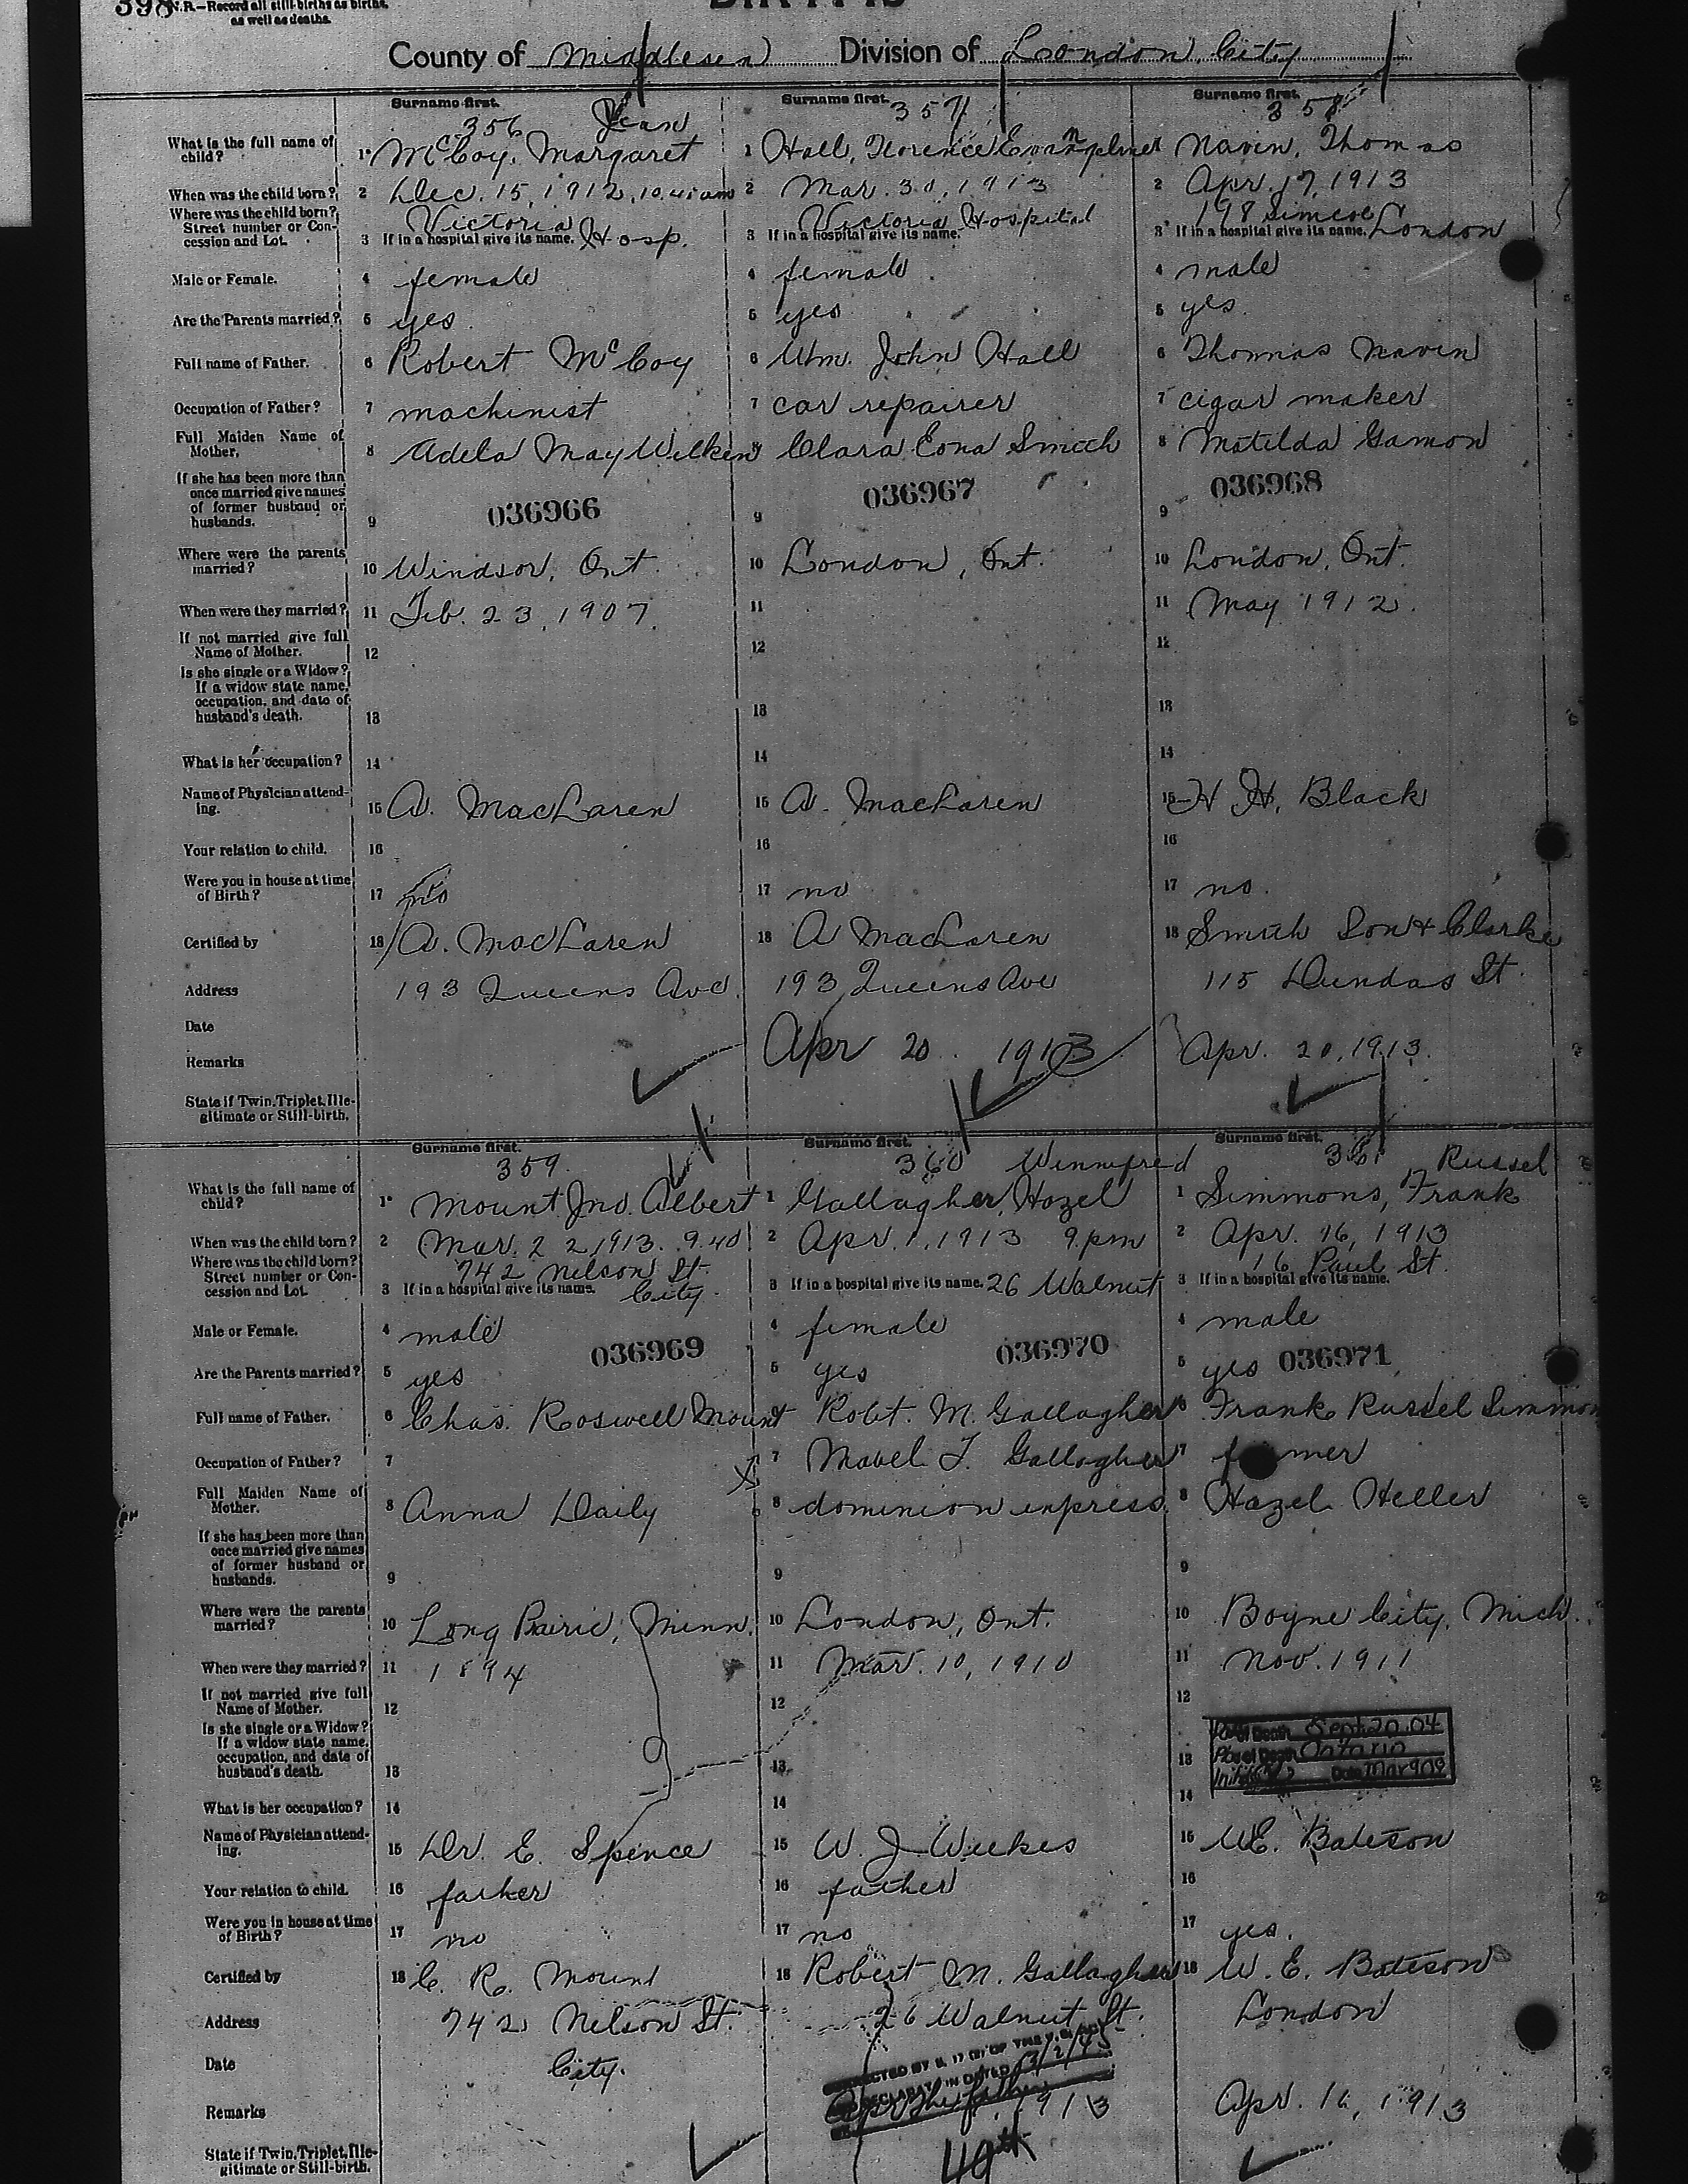 398 N.B.—Record all still-births as births, as well as deaths.
BIRTHS
County of Middlesex Division of London City
Surname first. Surname first. Surname first.
356 Jean 357 358
What is the full name of child? 1 McCoy, Margaret 1 Hall, Florence Navin, Thomas
When was the child born? 2 Dec. 15, 1912, 10.45 am 2 Mar. 30, 1913 2 Apr. 17, 1913
Where was the child born? Victoria Victoria Hospital 198 Simcoe
Street number or Concession and Lot. 3 If in a hospital give its name. Hosp. 3 If in a hospital give its name. 3 If in a hospital give its name. London
Male or Female. 4 female 4 female 4 male
Are the Parents married? 5 yes 5 yes 5 yes.
Full name of Father. 6 Robert McCoy 6 Wm. John Hall 6 Thomas Navin
Occupation of Father? 7 machinist 7 car repairer 7 cigar maker
Full Maiden Name of Mother. 8 Adela May Wilken 8 Clara Edna Smith 8 Matilda Gamon
If she has been more than once married give names of former husband or husbands. 9 036966 9 036967 9 036968
Where were the parents married? 10 Windsor, Ont. 10 London, Ont. 10 London, Ont.
When were they married? 11 Feb. 23, 1907. 11 11 May 1912.
If not married give full Name of Mother. 12 12 12
Is she single or a Widow? If a widow state name, occupation, and date of husband's death. 13 13 13
What is her occupation? 14 14 14
Name of Physician attending. 15 A. MacLaren 15 A. MacLaren 15 H. H. Black
Your relation to child. 16 16 16
Were you in house at time of Birth? 17 no 17 no 17 no.
Certified by 18 A. MacLaren 18 A MacLaren 18 Smith Son & Clarke
Address 193 Queens Ave. 193 Queens Ave 115 Dundas St.
Date
Remarks Apr 20 1913 Apr. 20, 1913.
State if Twin, Triplet, Illegitimate or Still-birth.
Surname first. Surname first. Surname first.
359. 360 Winnifred 361 Russel
What is the full name of child? 1 Mount, Jno. Albert 1 Gallagher, Hazel 1 Simmons, Frank
When was the child born? 2 Mar. 22, 1913. 9.40 2 Apr. 1, 1913 9 pm 2 Apr. 16, 1913
Where was the child born? 742 Nelson St. 16 Paul St.
Street number or Concession and Lot. 3 If in a hospital give its name. City. 3 If in a hospital give its name. 26 Walnut 3 If in a hospital give its name.
Male or Female. 4 male 4 female 4 male
036969 036970 036971
Are the Parents married? 5 yes 5 yes 5 yes
Full name of Father. 6 Chas. Roswell Mount 6 Robt. M. Gallagher 6 Frank Russel Simmons
Occupation of Father? 7 7 Mabel F. Gallagher 7 farmer
Full Maiden Name of Mother. 8 Anna Daily 8 dominion express 8 Hazel Heller
If she has been more than once married give names of former husband or husbands. 9 9 9
Where were the parents married? 10 Long Prairie, Minn. 10 London, Ont. 10 Boyne City, Mich.
When were they married? 11 1894 11 Mar. 10, 1910 11 Nov. 1911
If not married give full Name of Mother. 12 12 12
Is she single or a Widow? If a widow state name, occupation, and date of husband's death. 13 13 13
Date of Death Sept 20 04
Place of Death Ontario
Initials Date Mar 9 09
What is her occupation? 14 14 14
Name of Physician attending. 15 Dr. E. Spence 15 W. J. Weekes 15 W.E. Bateson
Your relation to child. 16 father 16 father 16
Were you in house at time of Birth? 17 no 17 no 17 yes.
Certified by 18 C. R. Mount 18 Robert M. Gallagher 18 W. E. Bateson
Address 742 Nelson St. 26 Walnut St. London
Date City.
Remarks 1913 Apr. 16, 1913
State if Twin, Triplet, Illegitimate or Still-birth. 40th